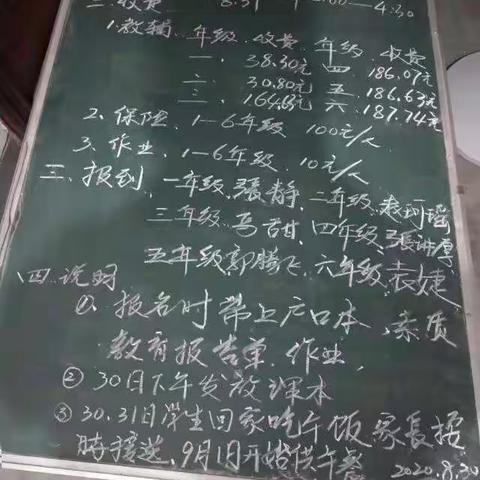 二、收费 8:31 1:00—4:30
1.教辅、年级、收费、年级、收费
一、38.30元 四、186.07元
二、30.80元 五、186.63元
三、164.63元 六、187.74元
2、保险、1—6年级 100元/人
3、作业、1—6年级、10元/人
三、报到、一年级、張静、二年级、袁珂瑶
三年级、马甜、四年级、張
五年级郭腾飞、六年级、袁婕
四、说明
①、报名时带上户口本、素质
教育报告单、作业,
②30日下午发放课本
③30.31日学生回家吃午饭家長按
時接送、9月1日开始供午餐
2020.8.30